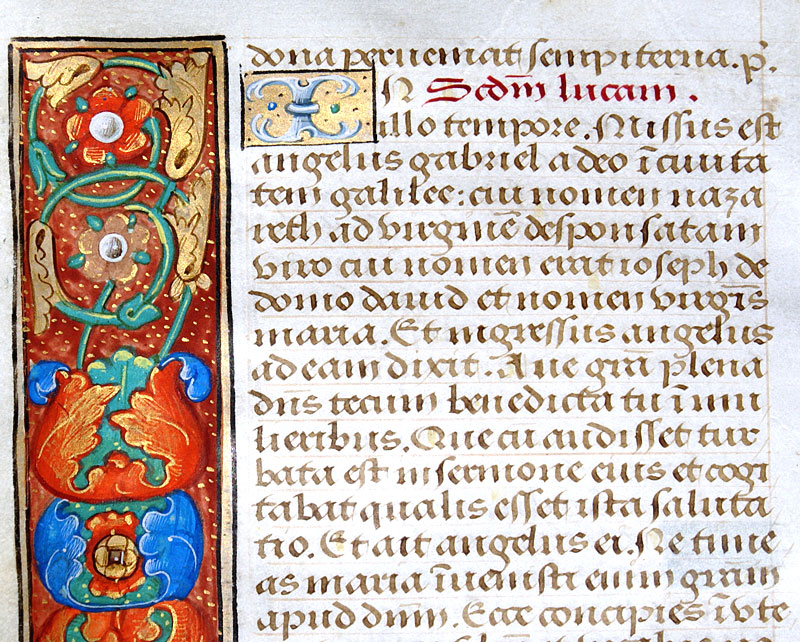 dona perueniat sempiterna. p̄.
IN Scdm̄ lucam.
illo tempore. Missus est
angelus gabriel a deo ī ciuita
tem galilee: cui nomen naza
reth ad virginē desponsatam
viro cui nomen erat ioseph de
domo dauid et nomen virgīs
maria. Et ingressus angelus
ad eam dixit. Aue grā plena
dn̄s tecum benedicta tu ī mu
lieribus. Que cū audisset tur
bata est in sermone eius et cogi
tabat qualis esset ista saluta
tio. Et ait angelus ei. Ne time
as maria īuenisti enim grām
apud dn̄m. Ecce concipies ī vte